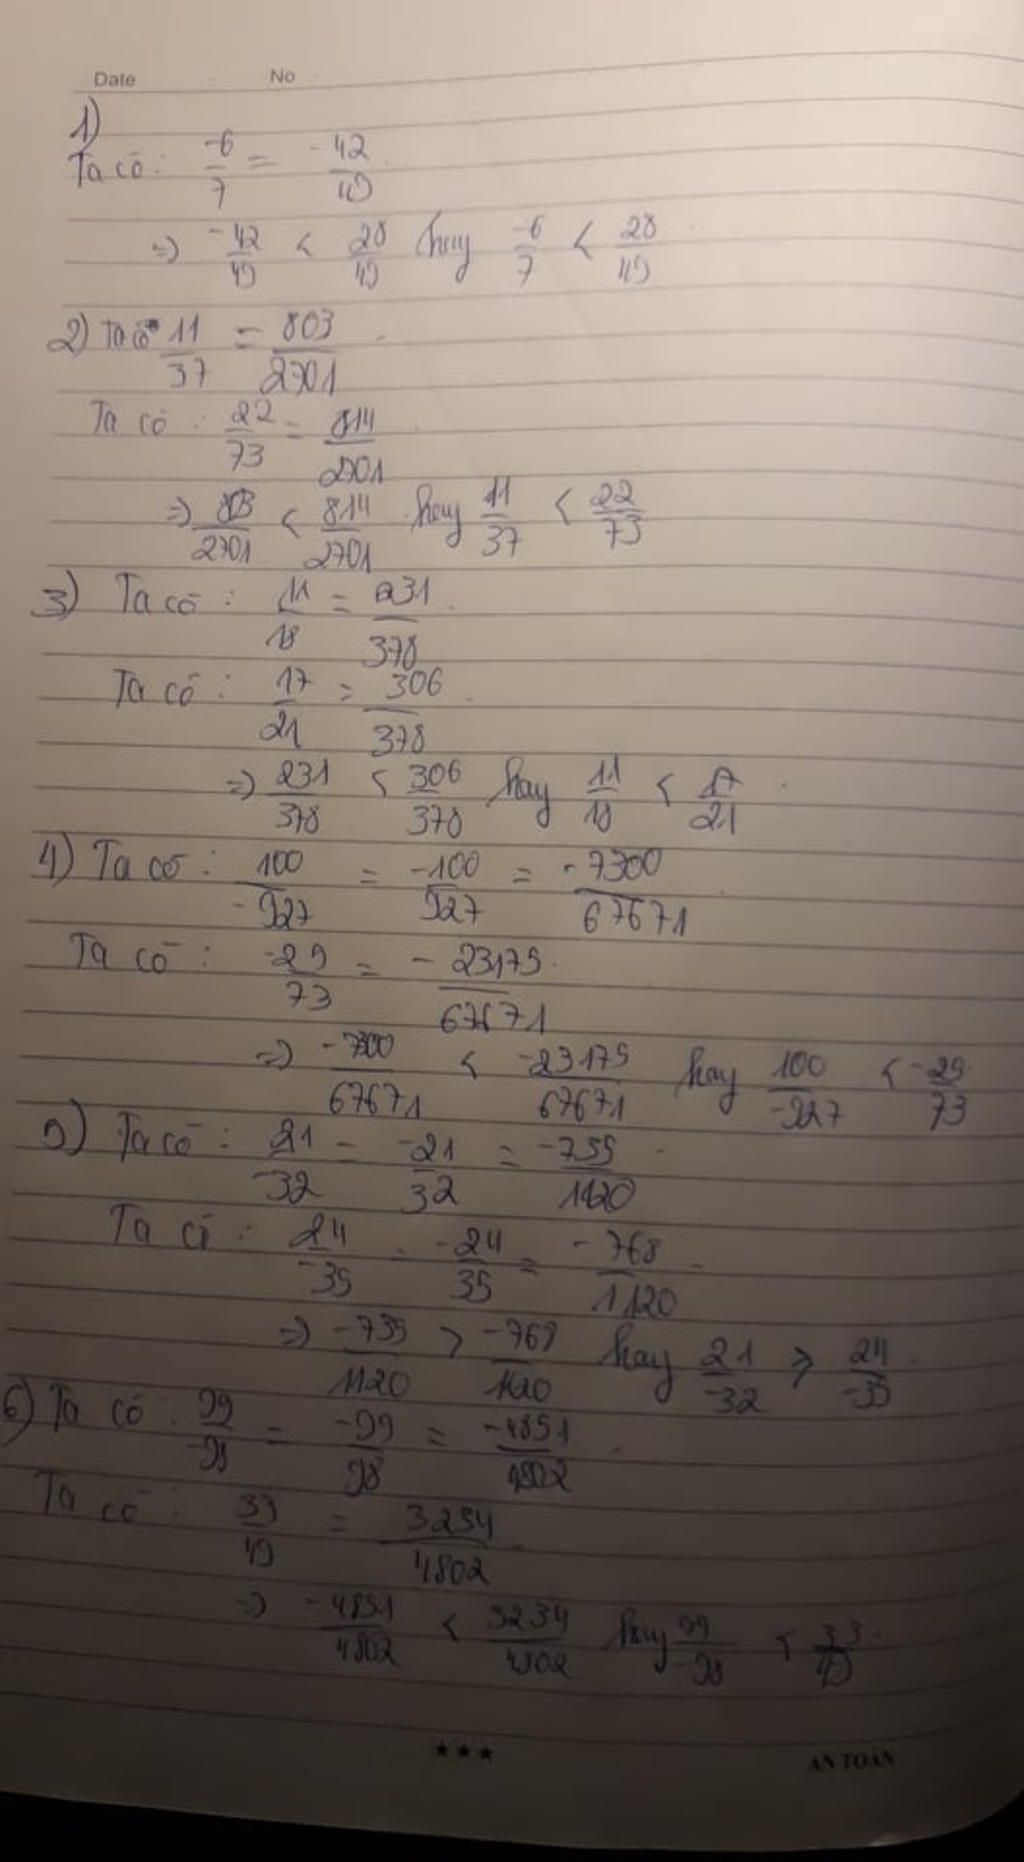 Date No
1)
Ta có: -6/7 = -42/49
=> -42/49 < 28/49 hay -6/7 < 28/49
2) Ta có 11/37 = 803/2701
Ta có: 22/73 = 814/2701
=> 803/2701 < 814/2701 hay 11/37 < 22/73
3) Ta có: 11/18 = 231/378
Ta có: 17/21 = 306/378
=> 231/378 < 306/378 hay 11/18 < 17/21
4) Ta có: 100/-927 = -100/927 = -7300/67671
Ta có: -25/73 = -23175/67671
=> -7300/67671 < -23175/67671 hay 100/-927 < -25/73
5) Ta có: 21/-32 = -21/32 = -735/1120
Ta có: 24/-35 = -24/35 = -768/1120
=> -735/1120 > -768/1120 hay 21/-32 > 24/-35
6) Ta có: 99/-98 = -99/98 = -4851/4802
Ta có: 33/49 = 3234/4802
=> -4851/4802 < 3234/4802 hay 99/-98 < 33/49
AN TOÀN